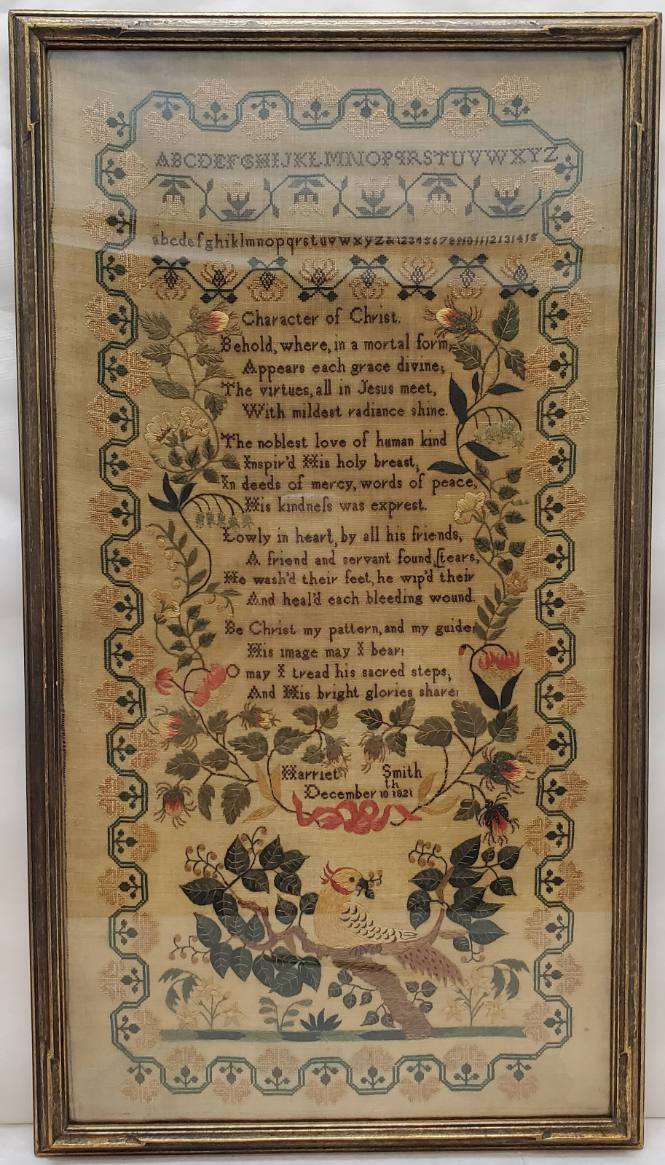 ABCDEFGHIJKLMNOPQRSTUVWXYZ
abcdefghiklmnopqrstuvwxyz&123456789101112131415
Character of Christ.
Behold, where, in a mortal form,
Appears each grace divine;
The virtues, all in Jesus meet,
With mildest radiance shine.
The noblest love of human kind
Inspir'd His holy breast,
In deeds of mercy, words of peace,
His kindneſs was exprest.
Lowly in heart, by all his friends,
A friend and servant found, [tears,
He wash'd their feet, he wip'd their
And heal'd each bleeding wound.
Be Christ my pattern, and my guide;
His image may I bear;
O may I tread his sacred steps,
And His bright glories share;
Harriet Smith
December 10th 1821